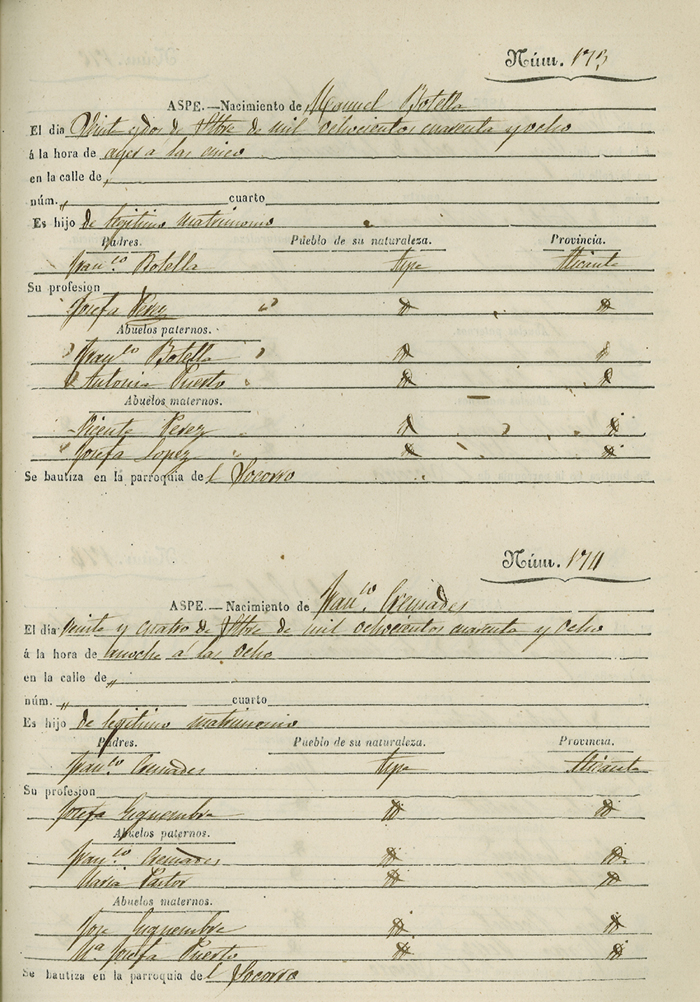 Núm. 173
ASPE.—Nacimiento de Manuel Botella
El dia Veinte y dos de Stbre de mil ochocientos cuarenta y ocho
á la hora de ayer a las cinco
en la calle de „
núm. „ cuarto
Es hijo de legitimo matrimonio
Padres. Pueblo de su naturaleza. Provincia.
Fran.co Botella Aspe Alicante
Su profesion
Josefa Perez
Abuelos paternos.
Fran.co Botella
Antonia Puerto
Abuelos maternos.
Vicente Perez
Josefa Lopez
Se bautiza en la parroquia de l Socorro
Núm. 174
ASPE.—Nacimiento de Fran.co Cremades
El dia veinte y cuatro de Stbre de mil ochocientos cuarenta y ocho
á la hora de anoche á las ocho
en la calle de „
núm. „ cuarto
Es hijo de legitimo matrimonio
Padres. Pueblo de su naturaleza. Provincia.
Fran.co Cremades Aspe Alicante
Su profesion
Josefa
Abuelos paternos.
Fran.co Cremades
Maria Pastor
Abuelos maternos.
Jose
M.a Josefa Puerto
Se bautiza en la parroquia de l Socorro